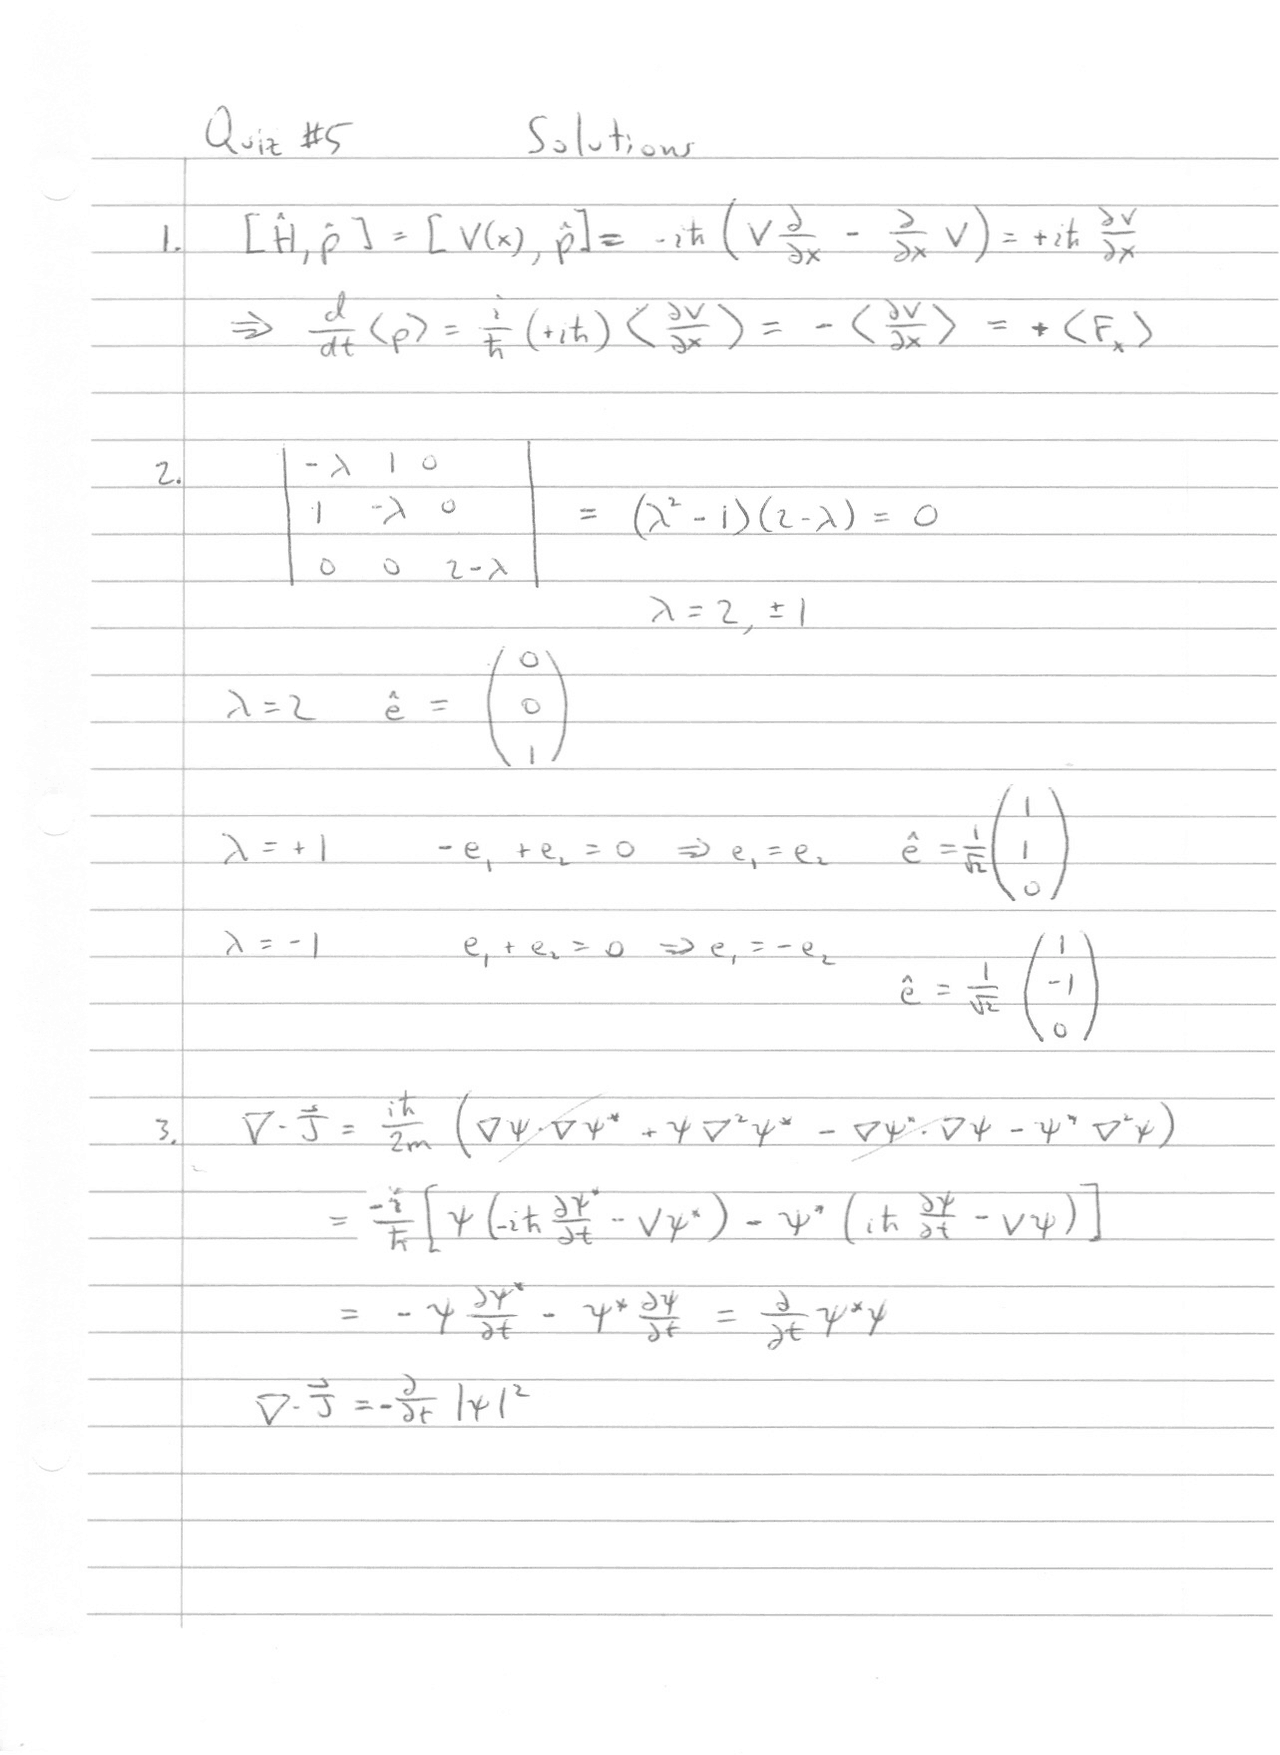 Quiz #5 Solutions
1. [Ĥ, p̂] = [V(x), p̂] = -iħ (V ∂/∂x - ∂/∂x V) = +iħ ∂V/∂x
⇒ d/dt ⟨p⟩ = i/ħ (+iħ) ⟨∂V/∂x⟩ = - ⟨∂V/∂x⟩ = + ⟨Fₓ⟩
2. | -λ 1 0 |
| 1 -λ 0 | = (λ² - 1)(2-λ) = 0
| 0 0 2-λ |
λ = 2, ± 1
λ = 2 ê = (0 0 1)
λ = +1 -e₁ + e₂ = 0 ⇒ e₁ = e₂ ê = 1/√2 (1 1 0)
λ = -1 e₁ + e₂ = 0 ⇒ e₁ = -e₂
ê = 1/√2 (1 -1 0)
3. ∇·J⃗ = iħ/2m (∇ψ·∇ψ* + ψ∇²ψ* - ∇ψ*·∇ψ - ψ*∇²ψ)
= -i/ħ [ψ (-iħ ∂ψ*/∂t - Vψ*) - ψ* (iħ ∂ψ/∂t - Vψ)]
= - ψ ∂ψ*/∂t - ψ* ∂ψ/∂t = ∂/∂t ψ*ψ
∇·J⃗ = -∂/∂t |ψ|²